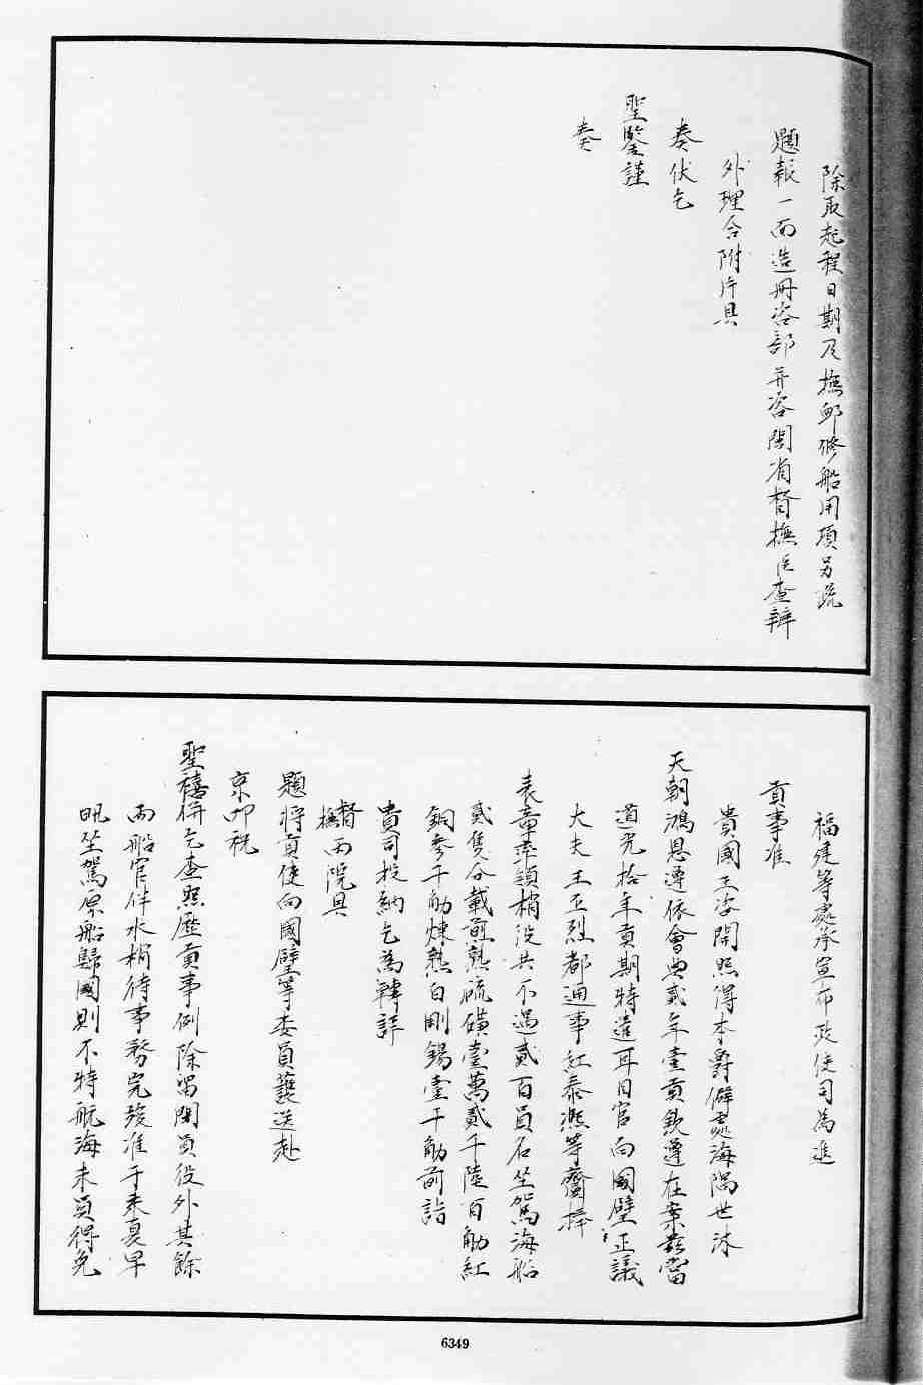 除取起程日期及撫卹修船用項另疏
題報一面造冊咨部并咨閩省督撫臣查辦
外理合附片具
奏伏乞
聖鑒謹
奏
福建等處承宣布政使司為進
貢事准
貴國王咨開照得本爵僻處海隅世沐
天朝鴻恩遵依會典貳年壹貢欽遵在案茲當
道光拾年貢期特遣耳目官向國璧正議
大夫王丕烈都通事紅泰熙等齎捧
表章率領梢役共不過貳百員名坐駕海船
貳隻分載煎熟硫磺壹萬貳千陸百觔紅
銅參千觔煉熟白剛錫壹千觔前詣
貴司投納乞為轉詳
督撫兩院具
題將貢使向國璧等委員護送赴
京叩祝
聖禧併乞查照歷貢事例除留閩員役外其餘
兩船官伴水梢待事務完竣准于來夏早
汛坐駕原船歸國則不特航海末員得免
6349